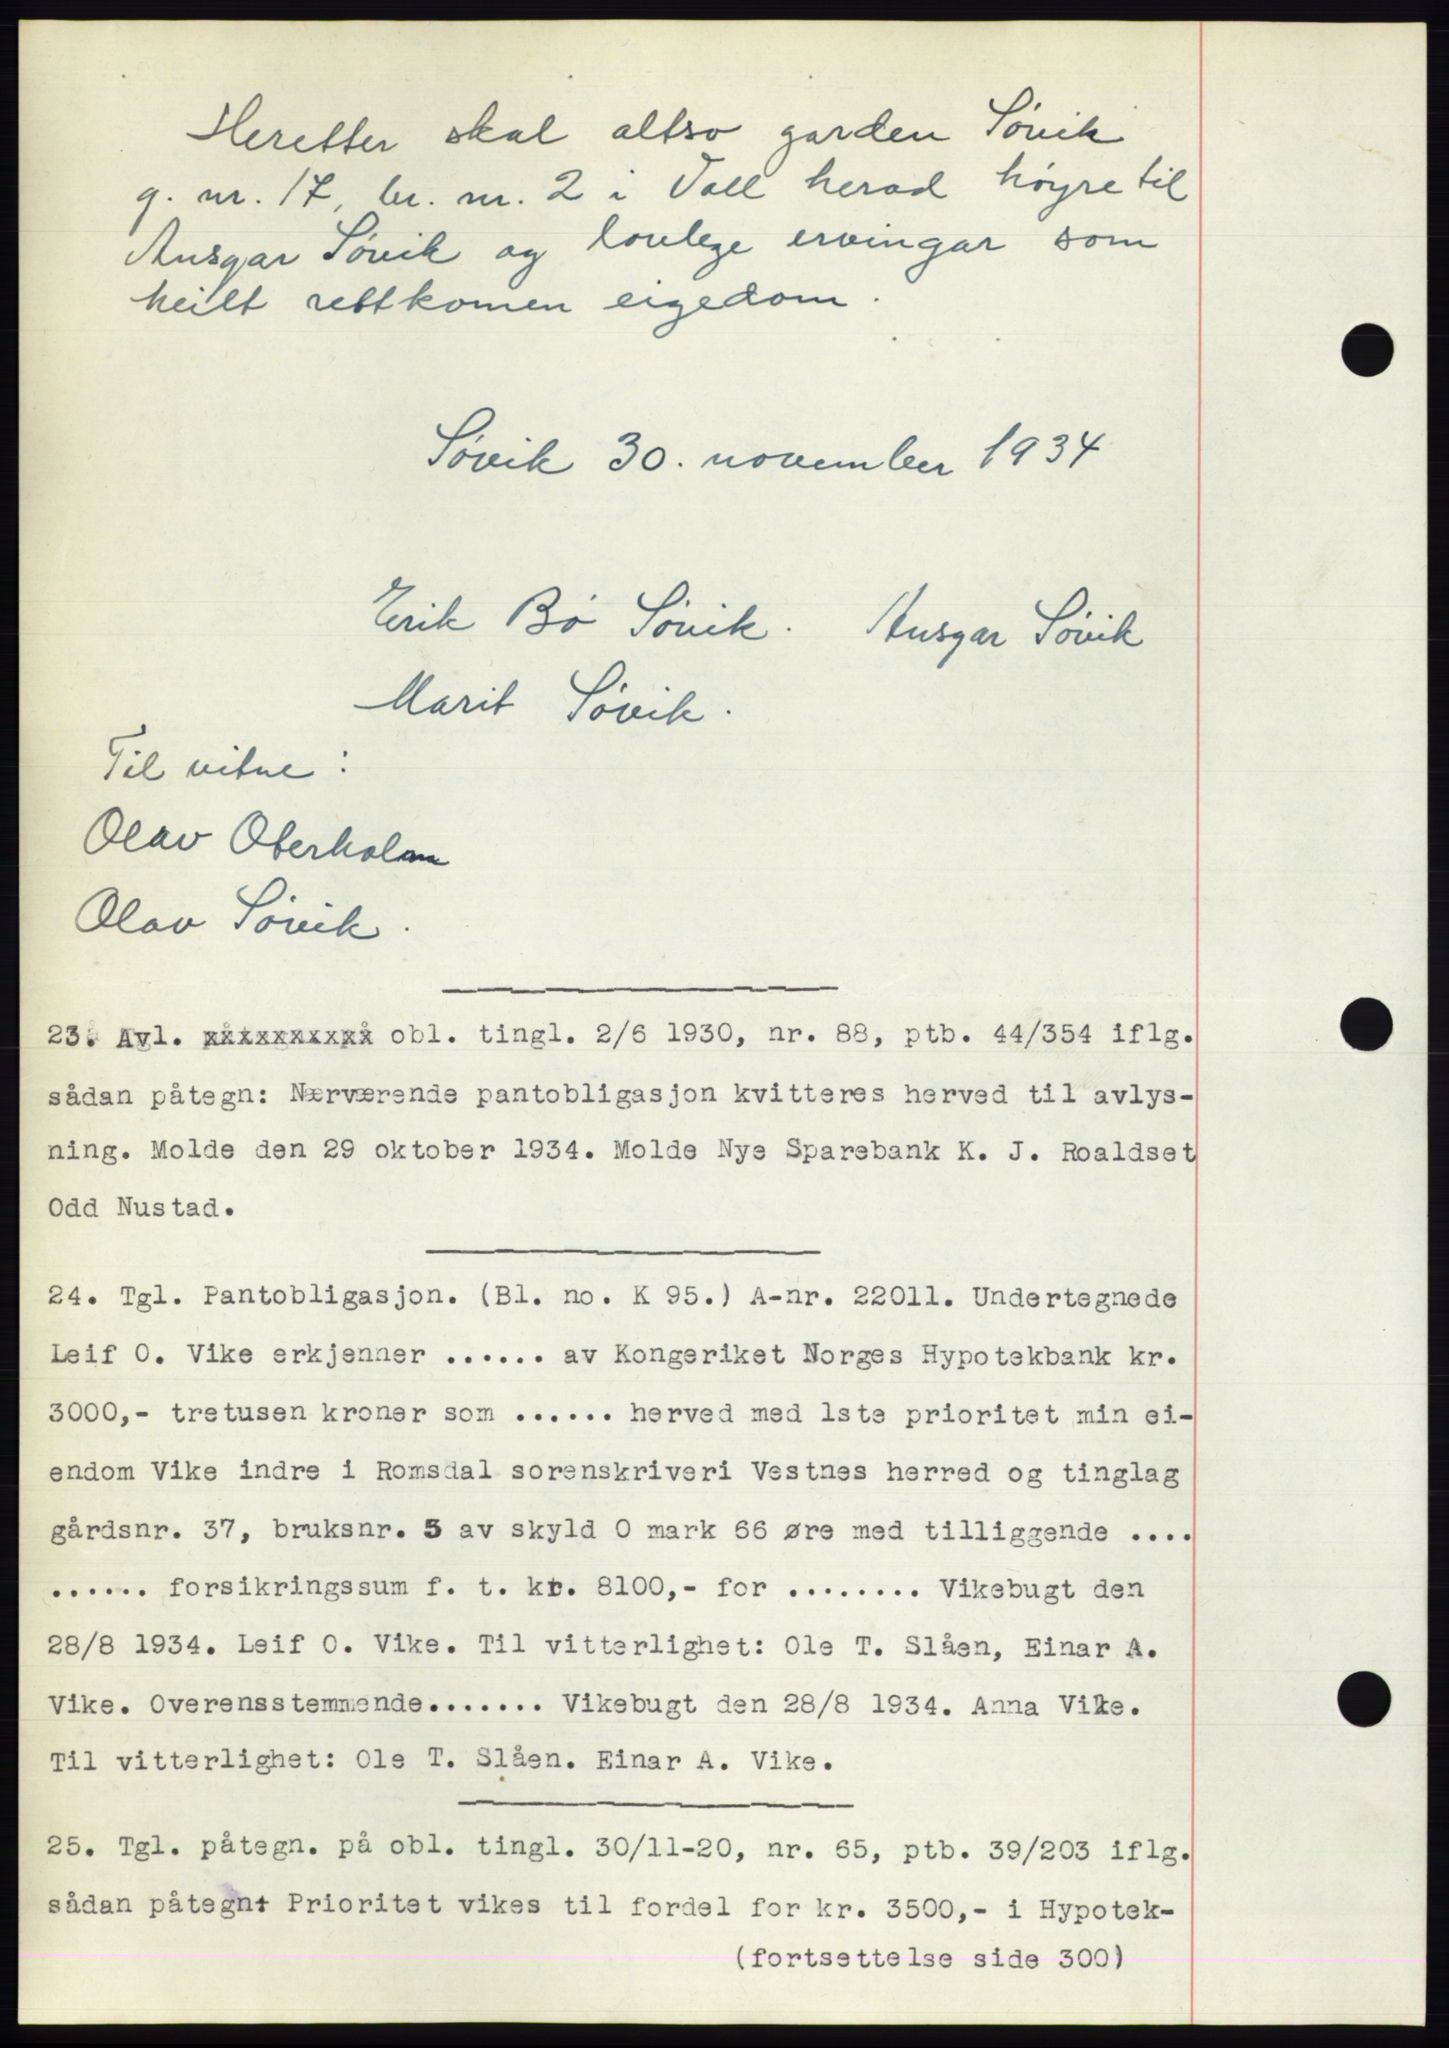 Heretter skal altso garden Søvik
g. nr. 17, br. nr. 2 i Voll herad höyre til
Ansgar Søvik og lovlege ervingar som
heilt rettkomen eigedom.
Søvik 30. november 1934
Erik Bø Søvik. Ansgar Søvik
Marit Søvik.
Til vitne:
Olav Oterholm
Olav Søvik.
23. Avl. xåxxxxxxxå obl. tingl. 2/6 1930, nr. 88, ptb. 44/354 iflg.
sådan påtegn: Nærværende pantobligasjon kvitteres herved til avlys-
ning. Molde den 29 oktober 1934. Molde Nye Sparebank K. J. Roaldset
Odd Nustad.
24. Tgl. Pantobligasjon. (Bl. no. K 95.) A-nr. 22011. Undertegnede
Leif O. Vike erkjenner ...... av Kongeriket Norges Hypotekbank kr.
3000,- tretusen kroner som ...... herved med 1ste prioritet min ei-
endom Vike indre i Romsdal sorenskriveri Vestnes herred og tinglag
gårdsnr. 37, bruksnr. 5 av skyld 0 mark 66 øre med tilliggende ....
...... forsikringssum f. t. kr. 8100,- for ........ Vikebugt den
28/8 1934. Leif O. Vike. Til vitterlighet: Ole T. Slåen, Einar A.
Vike. Overensstemmende....... Vikebugt den 28/8 1934. Anna Vike.
Til vitterlighet: Ole T. Slåen. Einar A. Vike.
25. Tgl. påtegn. på obl. tingl. 30/11-20, nr. 65, ptb. 39/203 iflg.
sådan påtegn: Prioritet vikes til fordel for kr. 3500,- i Hypotek-
(fortsettelse side 300)